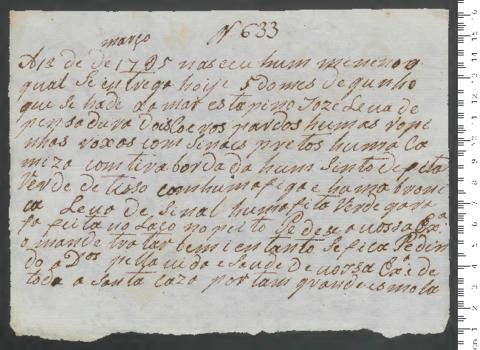 março Nº 633
A 12 de de 1795 nasceu hum menino o
qual Se entrega hoije 5 do mes de Junho
que se hade xamar estapino Joze Leva de
pensadura dois Coeyros pardos humas ropi
nhas roxas com Sinais pretos huma Ca
miza com tira bordada hum Sinto de fita
Verde de tisso com huma figa e huma broni
ca Leva de Sinal huma fita Verde para
fa feita no Laço no peito Pede a a vossa Exª
o mande tratar bem i en tanto Se fica Pedin
do a Dos pella vida e Saude de vossa Exª e de
toda a Santa Caza por tam grande esmola